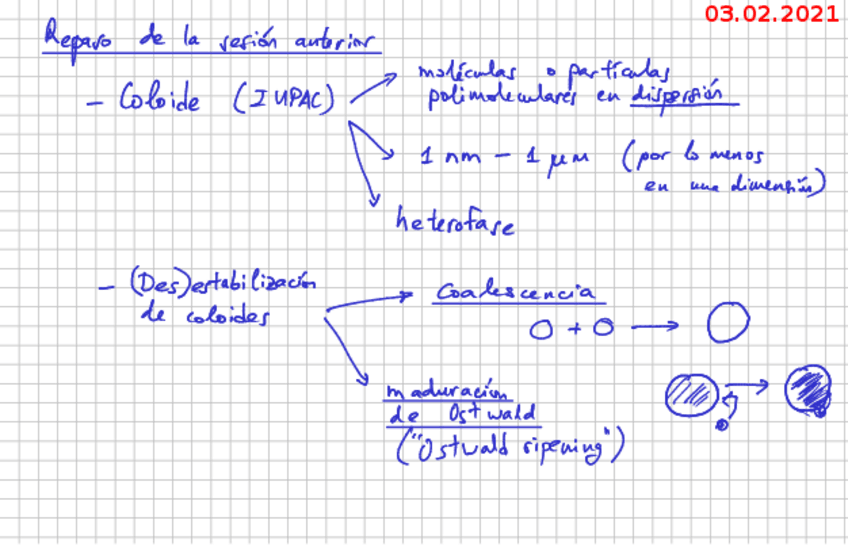 03.02.2021
Repaso de la sesión anterior
- Coloide (IUPAC)
moléculas o partículas
polimoleculares en dispersión
1 nm - 1 μm (por lo menos
en una dimensión)
heterofase
- (Des)estabilización
de coloides
Coalescencia
O + O → O
maduración
de Ostwald
("Ostwald ripening")